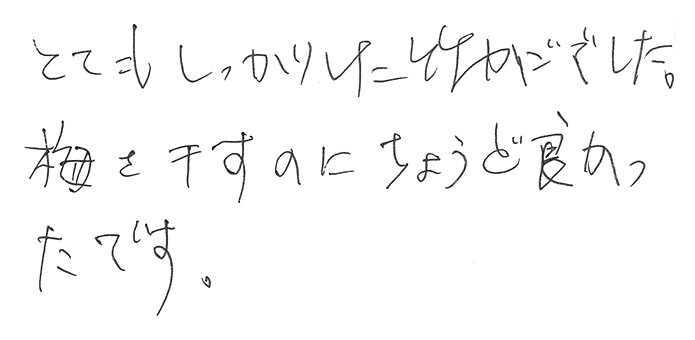 とてもしっかりした竹かごでした。
梅を干すのにちょうど良かっ
たです。